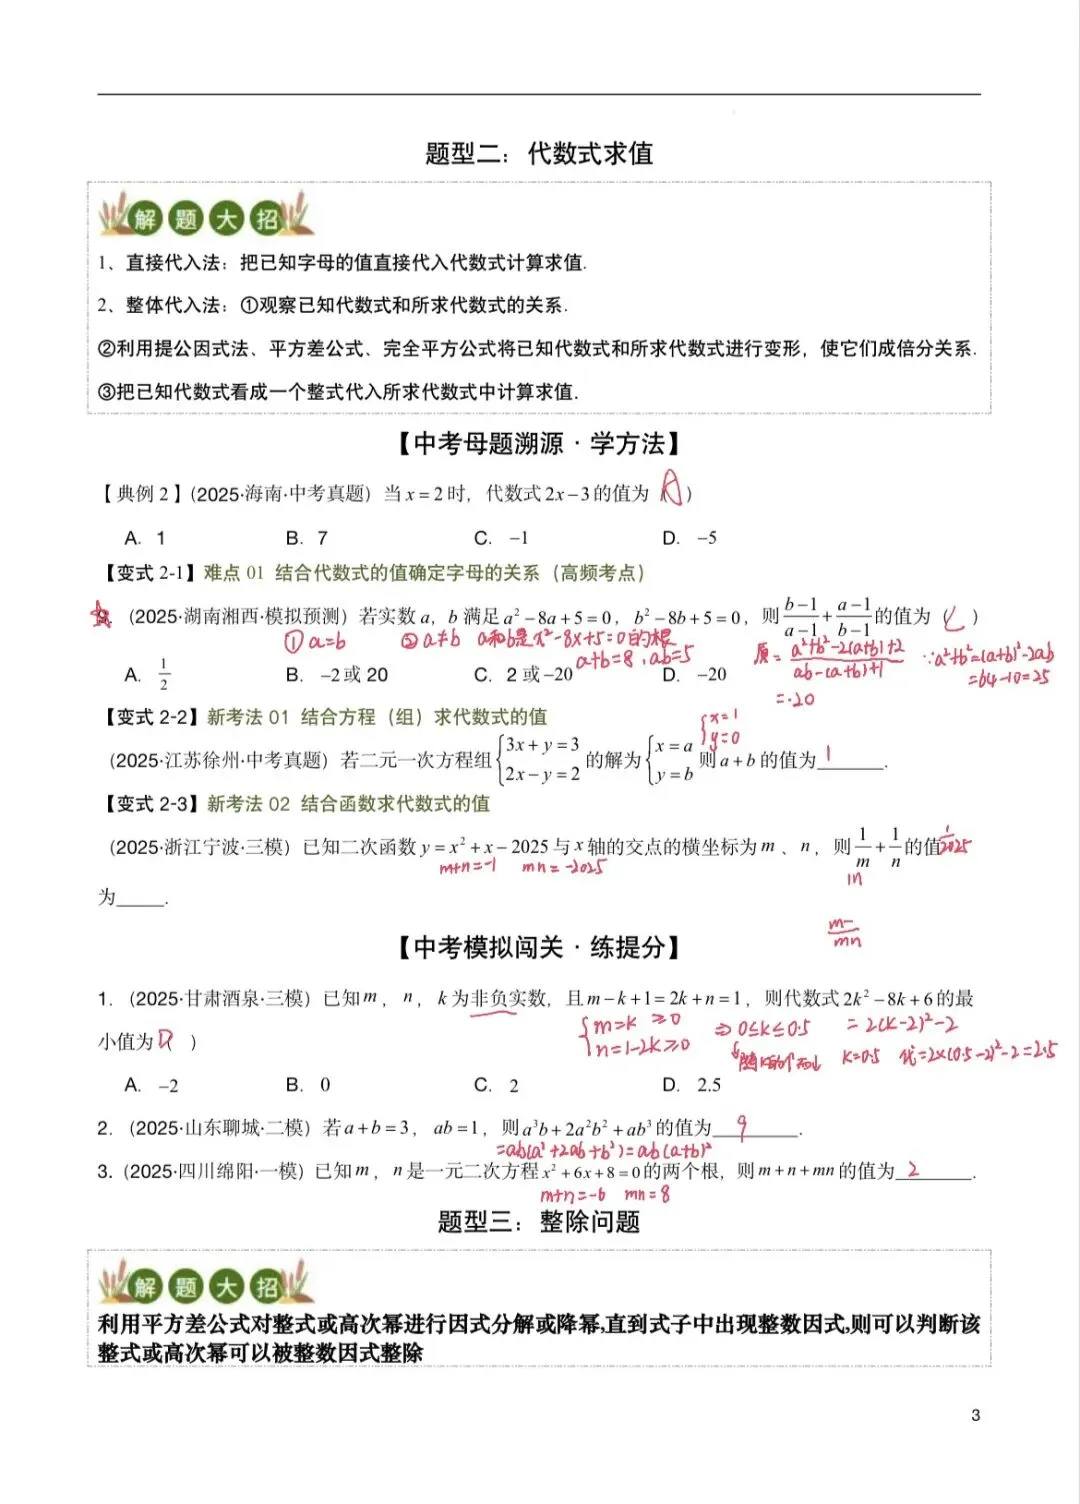 题型二：代数式求值
解题大招
1、直接代入法：把已知字母的值直接代入代数式计算求值.
2、整体代入法：①观察已知代数式和所求代数式的关系.
②利用提公因式法、平方差公式、完全平方公式将已知代数式和所求代数式进行变形，使它们成倍分关系.
③把已知代数式看成一个整式代入所求代数式中计算求值.
【中考母题溯源·学方法】
【典例2】(2025·海南·中考真题) 当 x=2 时，代数式 2x−3 的值为（A）
A. 1 B. 7 C. −1 D. −5
【变式 2-1】难点 01 结合代数式的值确定字母的关系（高频考点）
(2025·湖南湘西·模拟预测) 若实数 a，b 满足 a²−8a+5=0，b²−8b+5=0，则 (b−1)/(a−1) + (a−1)/(b−1) 的值为（C）
① a=b ② a≠b a和b是x²-8x+5=0的根
a+b=8，ab=5
原=(a²+b²-2(a+b)+2)/(ab-(a+b)+1) ∵a²+b²=(a+b)²-2ab
=64-10=25
=-20
A. 1/2 B. −2 或 20 C. 2 或 −20 D. −20
【变式 2-2】新考法 01 结合方程（组）求代数式的值
{x=1 y=0
(2025·江苏徐州·中考真题) 若二元一次方程组 {3x+y=3 2x−y=2 的解为 {x=a y=b 则 a+b 的值为 1 .
【变式 2-3】新考法 02 结合函数求代数式的值
(2025·浙江宁波·三模) 已知二次函数 y=x²+x−2025 与 x 轴的交点的横坐标为 m、n，则 1/m + 1/n 的值 1/2025
m+n=-1 mn=-2025
为_____.
【中考模拟闯关·练提分】
1. (2025·甘肃酒泉·三模) 已知 m，n，k 为非负实数，且 m−k+1=2k+n=1，则代数式 2k²−8k+6 的最
小值为（D）
{m=k ≥0 n=1-2k≥0 ⇒ 0≤k≤0.5 =2(k-2)²-2
k=0.5 代=2×(0.5-2)²-2=2.5
A. −2 B. 0 C. 2 D. 2.5
2. (2025·山东聊城·二模) 若 a+b=3，ab=1，则 a³b+2a²b²+ab³ 的值为 9 .
=ab(a²+2ab+b²)=ab(a+b)²
3. (2025·四川绵阳·一模) 已知 m，n 是一元二次方程 x²+6x+8=0 的两个根，则 m+n+mn 的值为 2 .
m+n=-6 mn=8
题型三：整除问题
解题大招
利用平方差公式对整式或高次幂进行因式分解或降幂,直到式子中出现整数因式,则可以判断该
整式或高次幂可以被整数因式整除
3